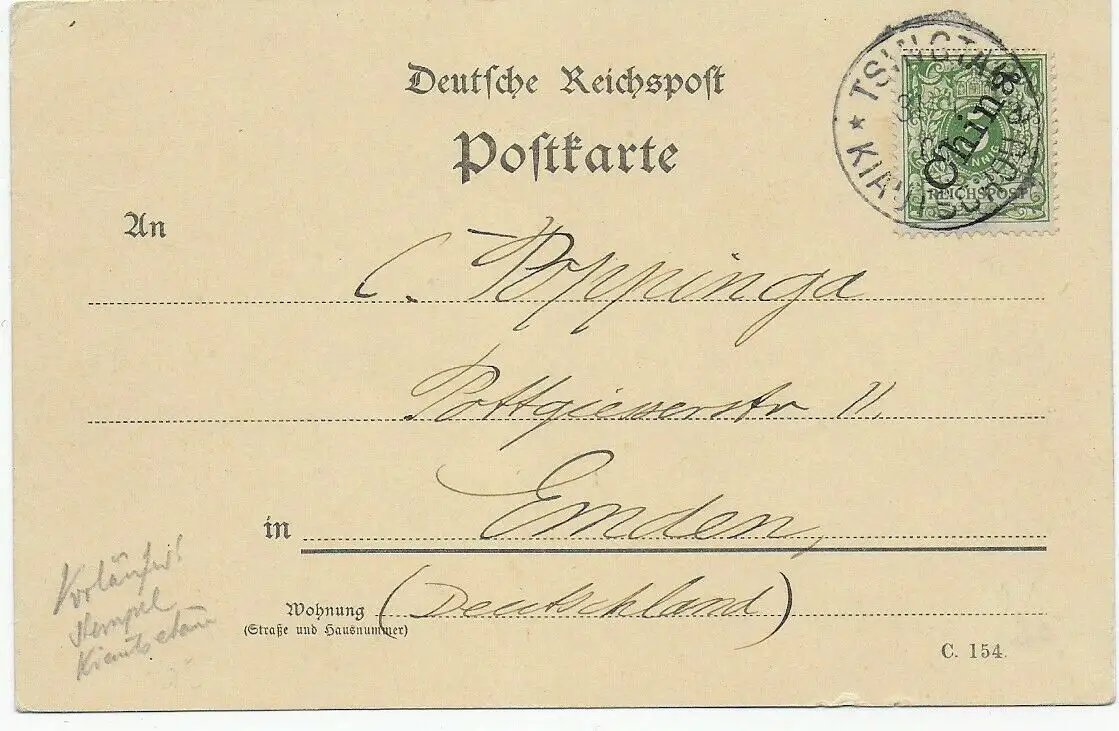 Deutsche Reichspost
Postkarte
★ TSINGTAU
KIAUTSCHOU
China
REICHSPOST
An
C. Poppinga
Pottgiesserstr 11.
in Emden,
Wohnung (Deutschland)
(Straße und Hausnummer)
Vorläufer!
Stempel
Kiautschau
C. 154.